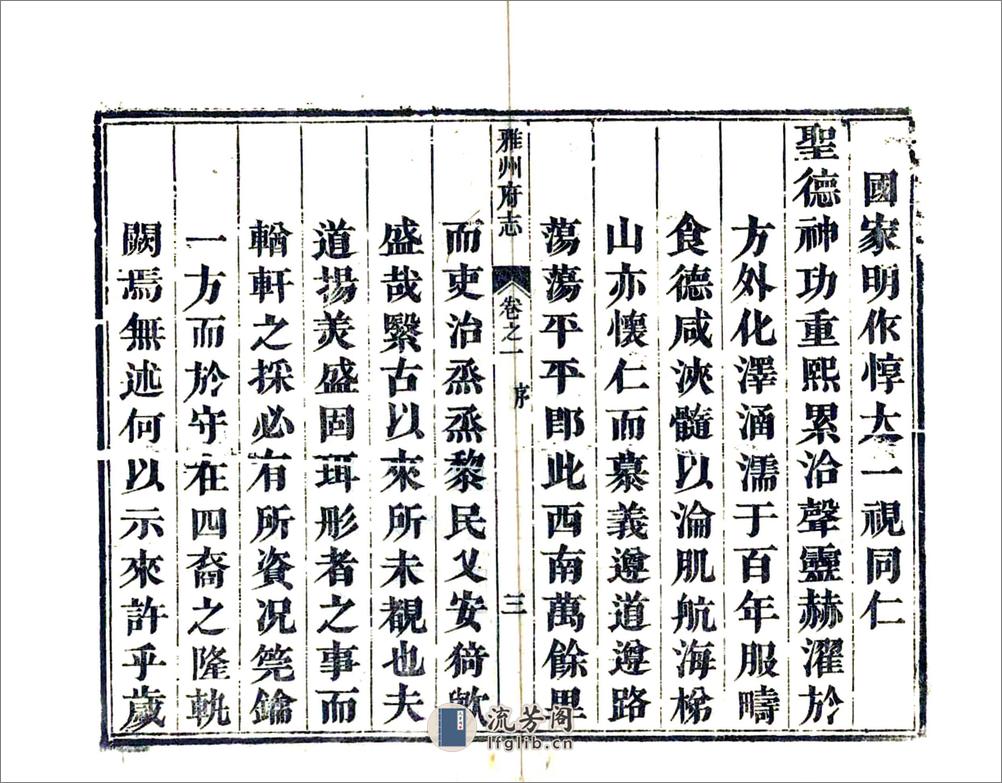 國家明作惇大一視同仁
聖德神功重熙累洽聲靈赫濯於
方外化澤涵濡于百年服疇
食德咸浹髓以淪肌航海梯
山亦懷仁而慕義遵道遵路
蕩蕩平平卽此西南萬餘里
雅州府志 卷之一 序 三
而吏治烝烝黎民乂安猗歟
盛哉繄古以來所未覩也夫
道揚美盛固珥形者之事而
輶軒之採必有所資况筦鑰
一方而於守在四裔之隆軌
闕焉無述何以示來許乎歲
流芳阁
lfglib.cn